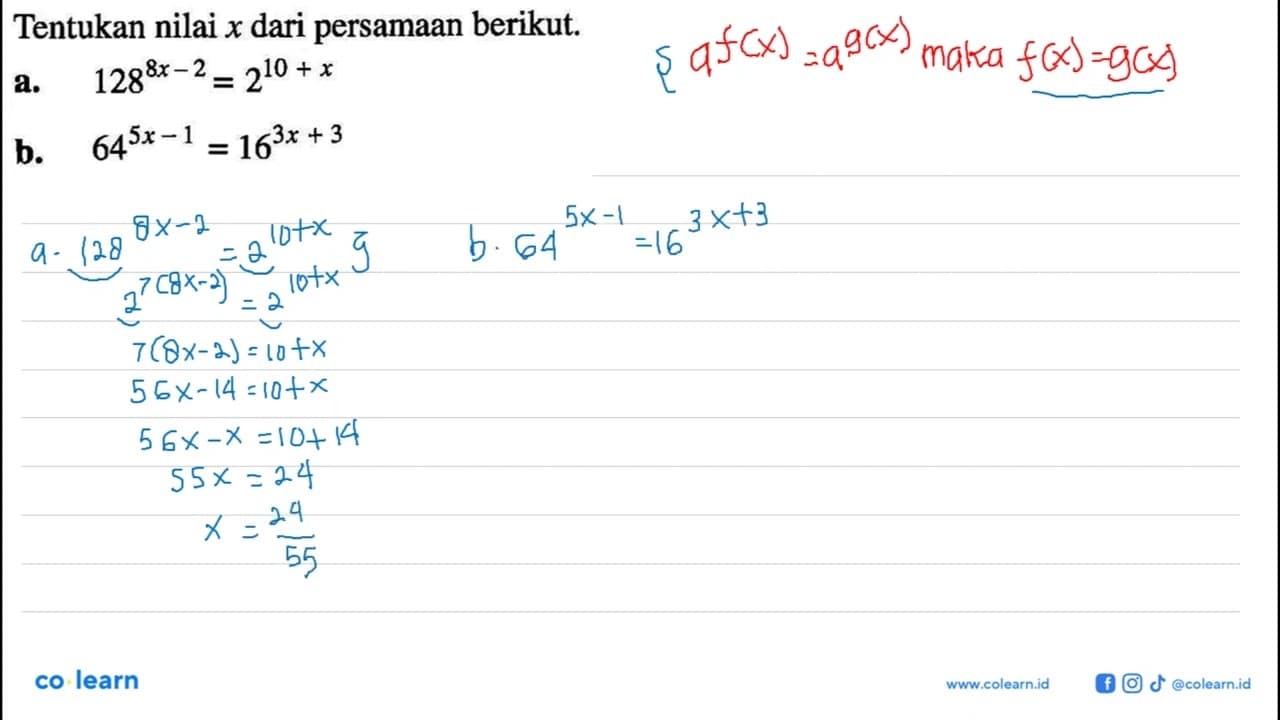 Tentukan nilai x dari persamaan berikut.
a. 128^{8x – 2} = 2^{10 + x}
b. 64^{5x – 1} = 16^{3x + 3}
a^{f(x)} = a^{g(x)} maka f(x)=g(x)
a. 128^{8x-2} = 2^{10+x}
2^{7(8x-2)} = 2^{10+x}
7(8x-2)=10+x
56x-14=10+x
56x-x=10+14
55x = 24
x = 24/55
b. 64^{5x-1} =16^{3x+3}
co learn
www.colearn.id
@colearn.id